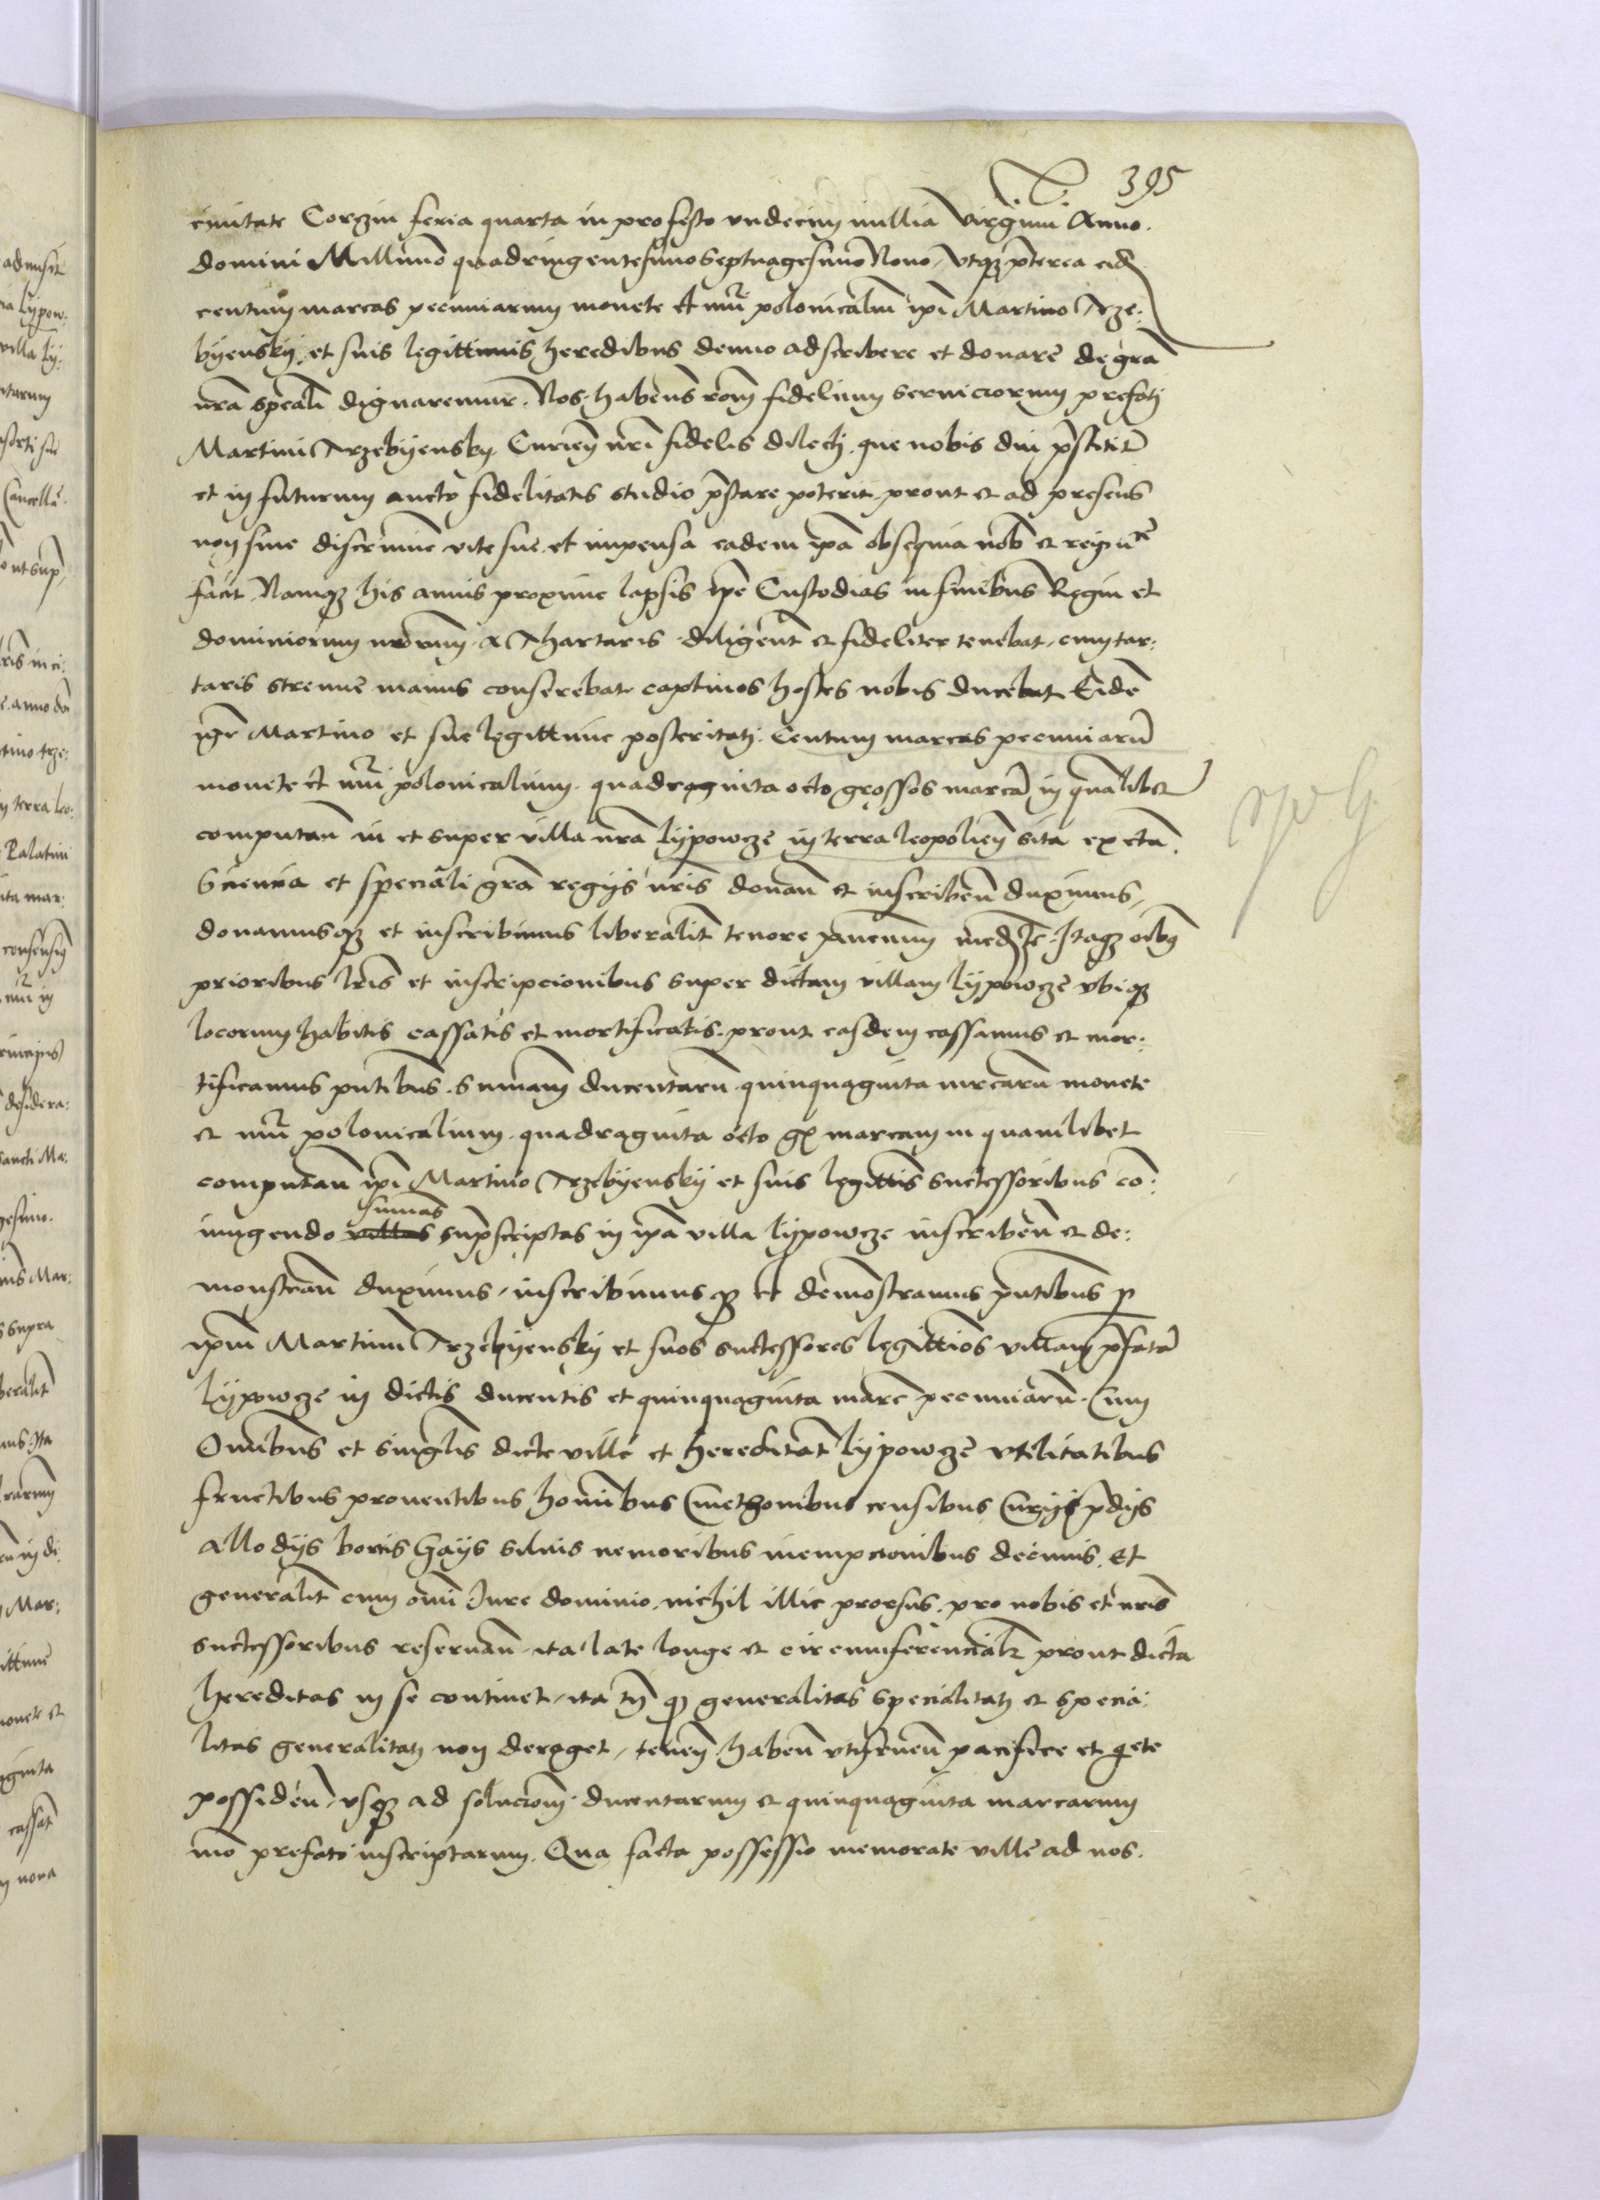 395
ciuitate Corczin feria quarta in profesto vndecim millia Virginu Anno
domini Millimo quadringentesimo Septuagesimo Nono, vtqz pterea eid
centum marcas pecuniarum monete et nui polonicaliu ipi Martino Trze:
byensky, et suis legittimis heredibus denuo adscribere et donare de gra
nra speali dignaremur. Nos habens rom fidelium seruiciorum prefati
Martini Trzebyensky Curien nri fidelis dilecti, que nobis diu pstitit
et in futurum aucto fidelitatis studio pstare poterit prout et ad presens
non sine discrimine vite sue et impensa eadem ipa obsequia nob et
facit. Namqz his annis proxime lapsis ipe Custodias in finibus Regni et
dominiorum nrorum a Thartaris diligent et fideliter tenebat, cum tar:
taris strenue manus conserebat captiuos hostes nobis ducebat. Eide
igr Martino et sue legittime posteritati Centum marcas pecuniaru
monete et nui polonicalium quadraginta octo grossos marca in qualibet
computan in et super villa nra lypowcze in terra leopolien sita ex cta
Sciencia et speciali gra regys nris donan et inscriben duximus,
donamusqz et inscribimus liberalit tenore pncium mediante. Itaqz oibus
prioribus lris et inscripcionibus super dictam villam lypowcze vbiqz
locorum habitis cassatis et mortificatis, prout easdem cassamus et mor:
tificamus pntibus. Sumam ducentaru quinquaginta mrcaru monete
et nui polonicalium quadraginta octo gs marcam in quamlibet
computan ipi Martino Trzebyensky et suis legittis successoribus co:
iungendo villas sumas supscriptas in ipa villa lypowcze inscriben et de:
monstran duximus, inscribimusqz et demostramus pntibus p
ipm Martinu Trzebyensky et suos successores legittios villam pfata
lypowcze in dictis ducentis et quinquaginta marc pecuniaru. Cum
Omibus et singlis dicte ville et hereditat lypowcze vtilitatibus
fructibus prouentibus hominibus Cmethonibus censibus Curys pdys
allodys borris Gays siluis nemoribus inempcionibus decimis. Et
generalit cum omi Iure dominio, nichil illic prorsus pro nobis et nris
successoribus reseruan, ita late longe et circumferencialr prout dicta
hereditas in se continet, ita tn qd generalitas specialitati et specia:
litas generalitati non deroget, tenen haben vtifruen pacifice et qete
possiden, vsqz ad solucionem ducentarum et quinquaginta marcarum
mo prefato inscriptarum. Qua facta possessio memorate ville ad nos